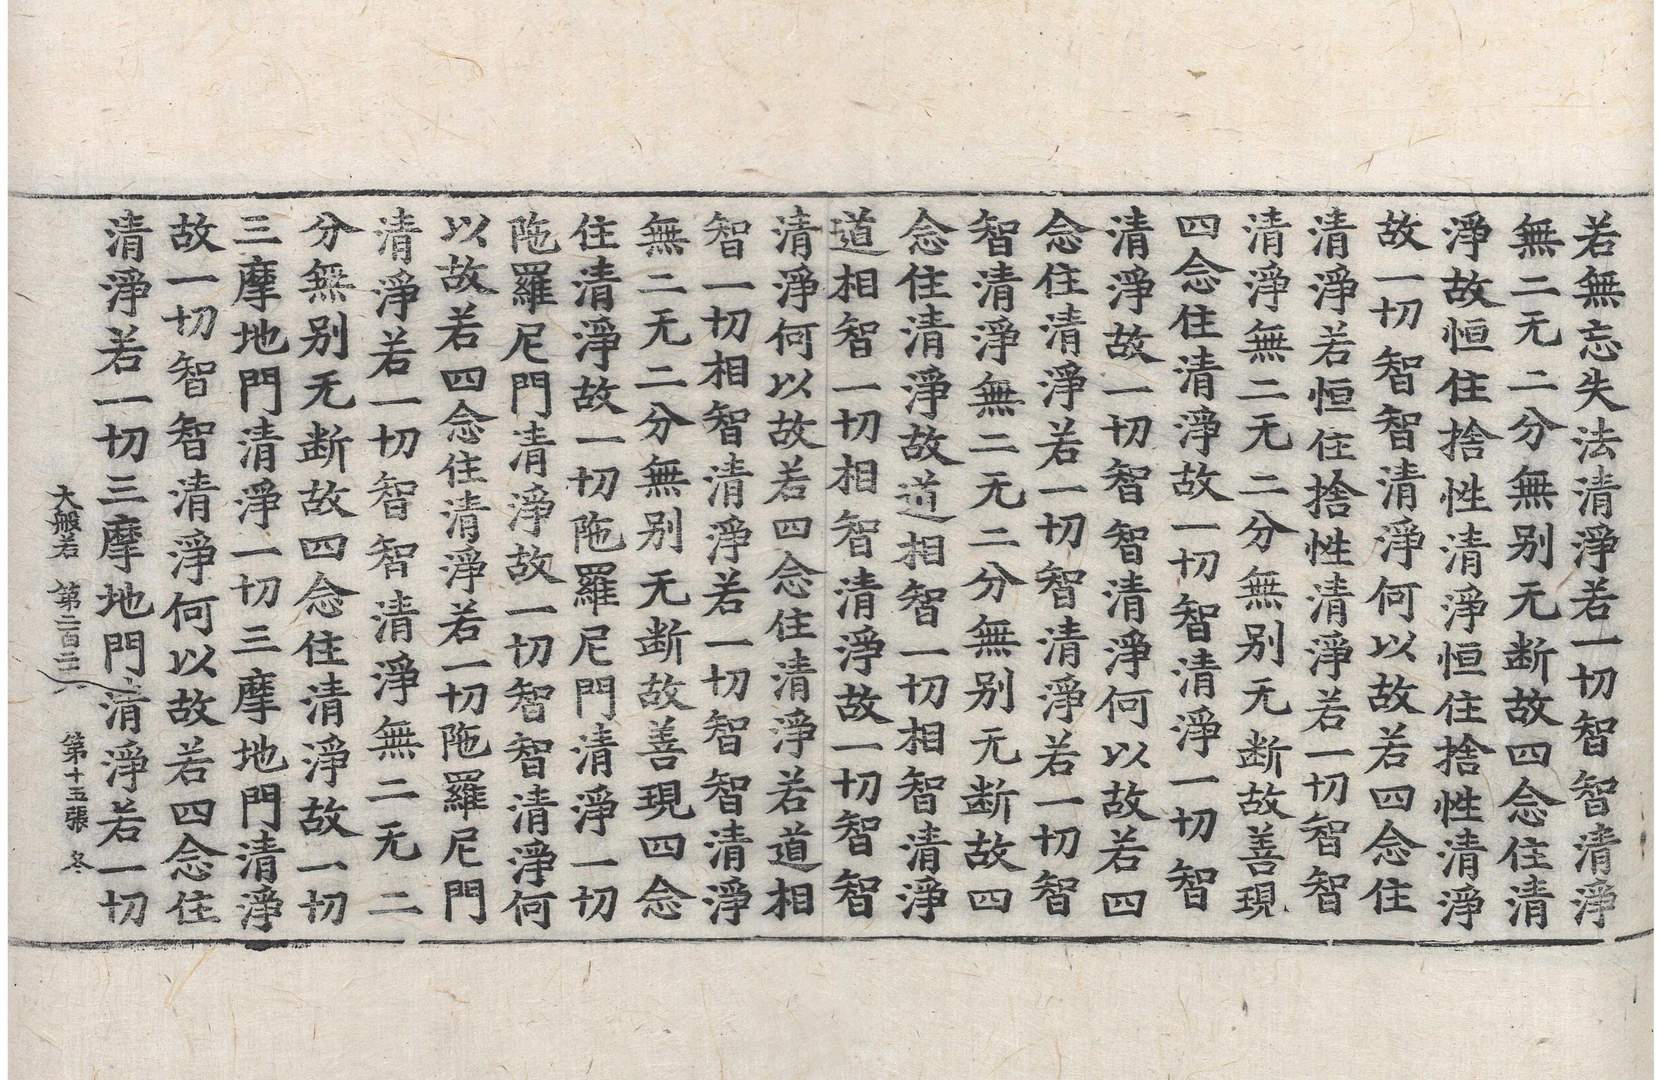 若無忘失法清淨若一切智智清淨
無二无二分無别无断故四念住清
淨故恒住捨性清淨恒住捨性清淨
故一切智智清淨何以故若四念住
清淨若恒住捨性清淨若一切智智
清淨無二无二分無别无断故善現
四念住清淨故一切智清淨一切智
清淨故一切智智清淨何以故若四
念住清淨若一切智清淨若一切智
智清淨無二无二分無别无断故四
念住清淨故道相智一切相智清淨
道相智一切相智清淨故一切智智
清淨何以故若四念住清淨若道相
智一切相智清淨若一切智智清淨
無二无二分無别无断故善現四念
住清淨故一切陁羅尼門清淨一切
陁羅尼門清淨故一切智智清淨何
以故若四念住清淨若一切陁羅尼門
清淨若一切智智清淨無二无二
分無别无断故四念住清淨故一切
三摩地門清淨一切三摩地門清淨
故一切智智清淨何以故若四念住
清淨若一切三摩地門清淨若一切
大般若 第二百二六 第十五張 冬